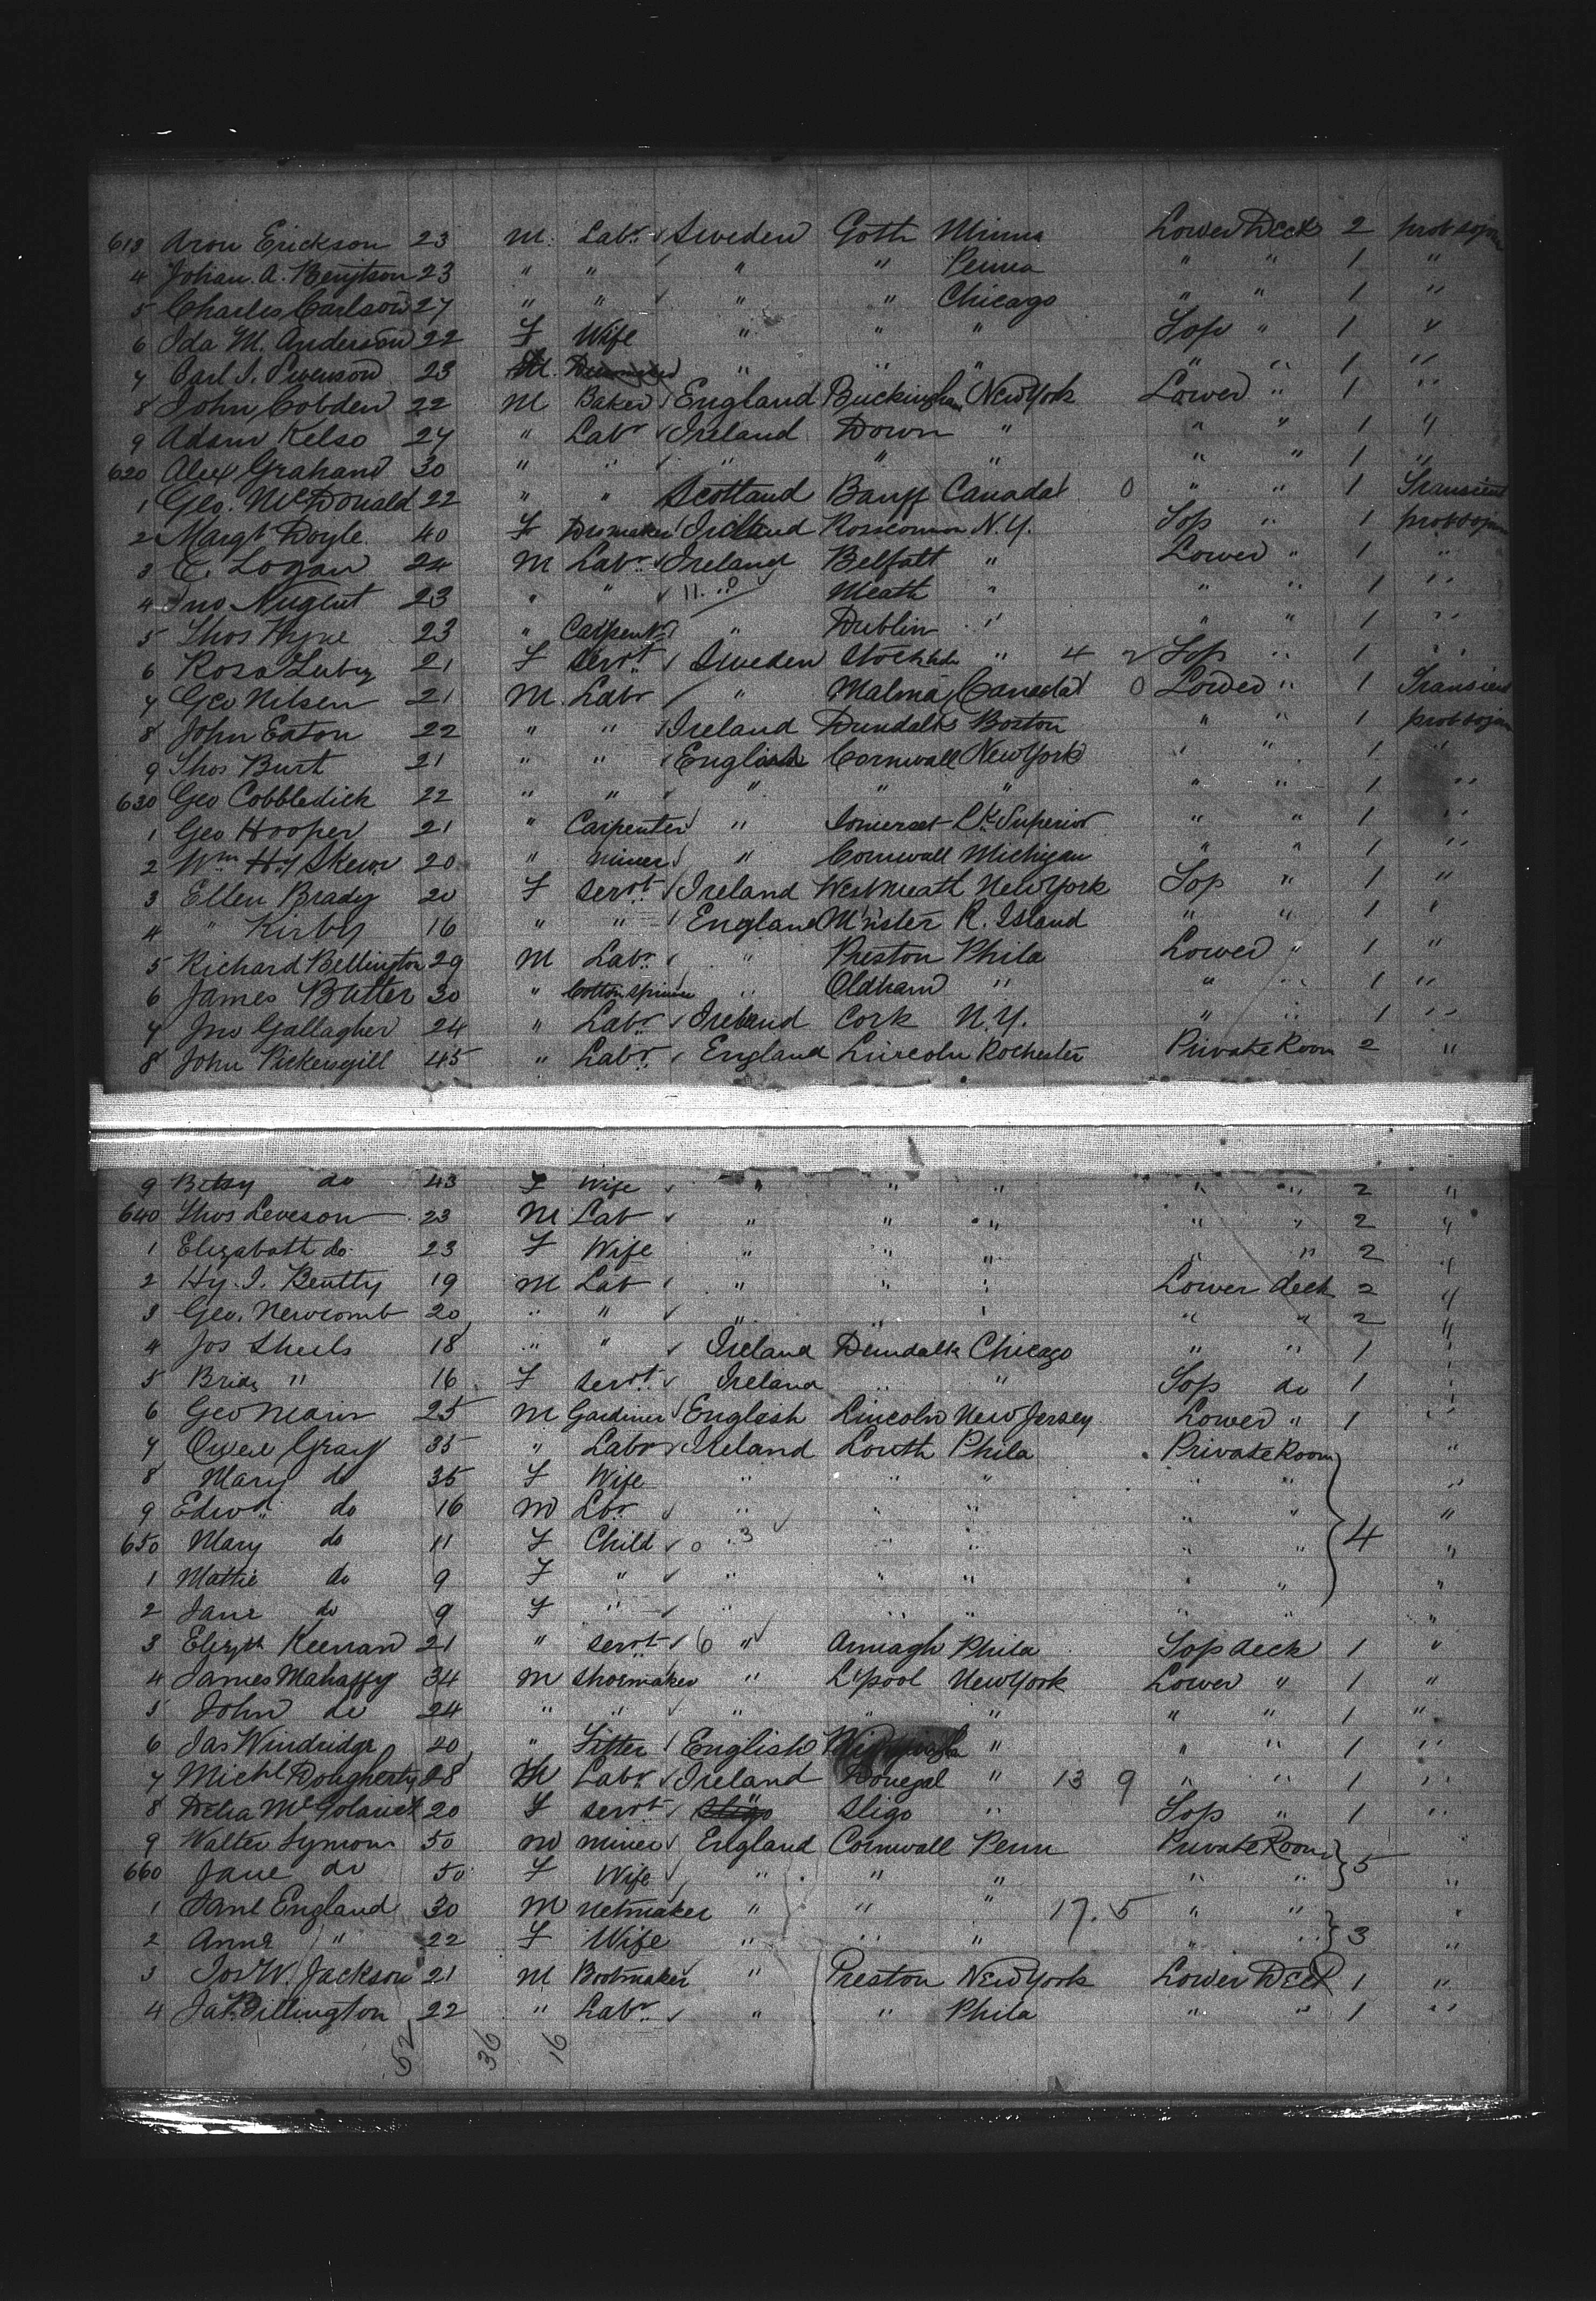 613 Aron Erickson 23 M. Labr. Sweden Goth Minna Lower Deck 2 prot sojn
4 Johan. A. Bengtson 23 " " " " Penna " " 1 "
5 Charles Carlson 27 " " " " Chicago " " 1 "
6 Ida M. Anderson 22 F Wife " " " Top " 1 "
7 Carl J. Swenson 23 M. " " " " " 1 "
8 John Cobden 22 M Baker England Buckingham New York Lower " 1 "
9 Adam Kelso 24 " Labr Ireland Down " " " 1 "
620 Alex Graham 30 " " " " " " " 1 "
1 Geo. McDonald 22 " " Scotland Banff Canada 0 " " 1 Transient
2 Margt Doyle 40 F Dresmaker Ireland Roscommon N.Y. Top " 1 prot sojn
3 C. Logan 24 M Labr. Ireland Belfast " Lower " 1 "
4 Jno Nugent 23 " " 11. 8 Meath " " " 1 "
5 Thos Pyne 23 " Carpentr " Dublin " " " 1 "
6 Rosa Luby 21 F Servt. Sweden Stockh " 4 2 Top " 1 "
7 Geo Nilsen 21 M. Labr " Malma Canada 0 Lower " 1 Transient
8 John Eaton 22 " " Ireland Dundalk Boston " " 1 prot sojn
9 Thos Burt 21 " " English Cornwall New York " " 1 "
630 Geo Cobbledick 22 " " " " " " " 1 "
1 Geo Hooper 21 " Carpenter " Somerset Lk Superior " " 1 "
2 Wm Hy Skewr 20 " Miner " Cornwall Michigan " " 1 "
3 Ellen Brady 20 F Servt. Ireland West Meath New York Top " 1 "
4 " Kirby 16 " " England M'n'ster R. Island " " 1 "
5 Richard Bellington 29 M Labr. " Preston Phila Lower " 1 "
6 James Butter 30 " Cotton Spinner " Oldham " " " 1 "
7 Jno Gallagher 24 " Labr. Ireland Cork N.Y. " " 1 "
8 John Pickersgill 45 " Labr. England Lincoln Rochester Private Room 2 "
9 Betsy do 43 F Wife " " " " " 2 "
640 Thos Leveson 23 M Lab " " " " " 2 "
1 Elizabath do. 23 F Wife " " " " " 2 "
2 Hy. J. Beutty 19 M Lab " " " Lower deck 2 "
3 Geo. Newcomb 20 " " " " " " " 2 "
4 Jos Sheils 18 " " Ireland Dundalk Chicago " " 1 "
5 Bridg " 16 F Servt. Ireland " " Top do 1 "
6 Geo Mair 25 M Gardiner English Lincoln New Jersey Lower " 1 "
7 Owen Gray 35 " Labr Ireland Louth Phila Private Room "
8 Mary do 35 F Wife " " " " " "
9 Edwd. do 16 M Lbr. " " " " " "
650 Mary do 11 F Child 0 3 " " " " 4 "
1 Mattie do 9 F " " " " " " "
2 Jane do 9 F " " " " " " "
3 Elizth Keenan 21 " Servt 6 " Armagh Phila Top deck 1 "
4 James Mahaffy 34 M Shoemaker " L'pool New York Lower " 1 "
5 John do 24 " " " " " " " 1 "
6 Jas Windridge 40 " Fitter English " " " 1 "
7 Michl Dougherty 28 M Labr. Ireland Donegal " 13 9 " " 1 "
8 Delia McGolarick 20 F Servt. " Sligo " Top " 1 "
9 Walter Symons 50 M Miner England Cornwall Penn Private Room "
660 Jane do 50 F Wife " " " " " 5 "
1 Saml England 30 M Netmaker " " " 17. 5 " " "
2 Anna " 22 F Wife " " " " " 3 "
3 Jos W. Jackson 21 M Bootmaker " Preston New York Lower Deck 1 "
4 Jas Billington 22 " Labr. " " Phila " " 1 "
52 36 16